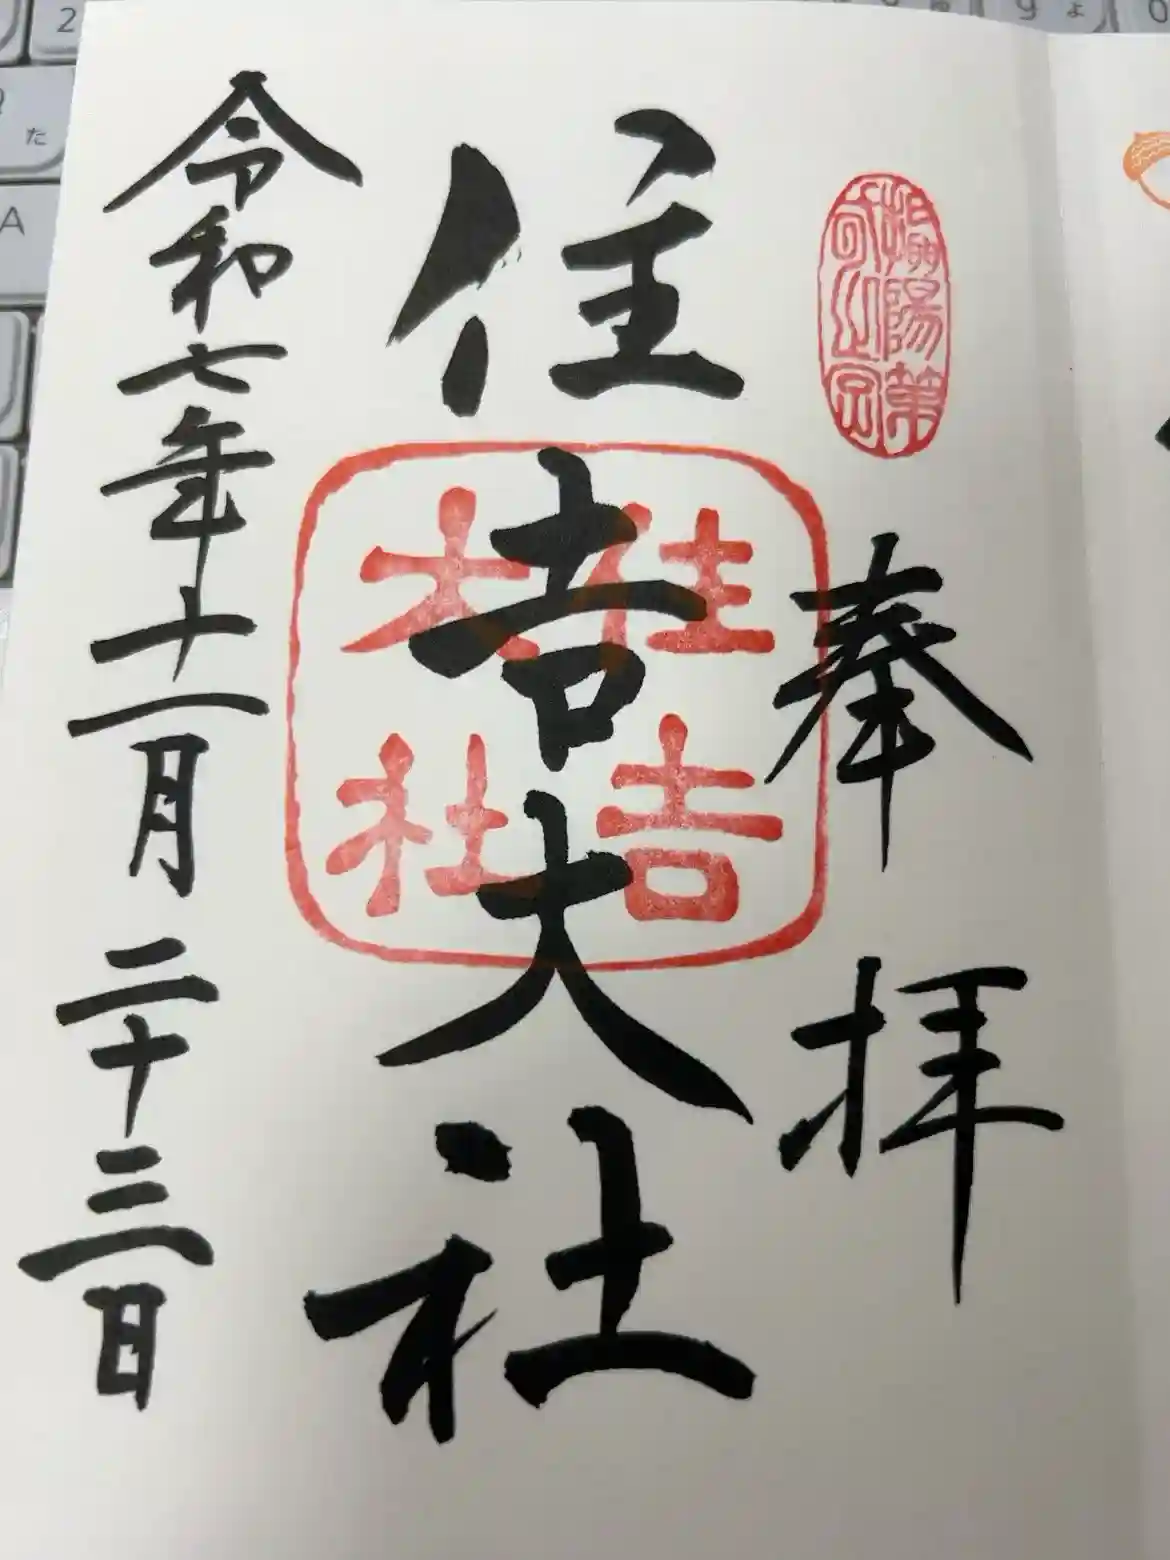 陽第
奉拝
住吉大社
住吉
大社
令和七年十一月二十三日
2
た
A